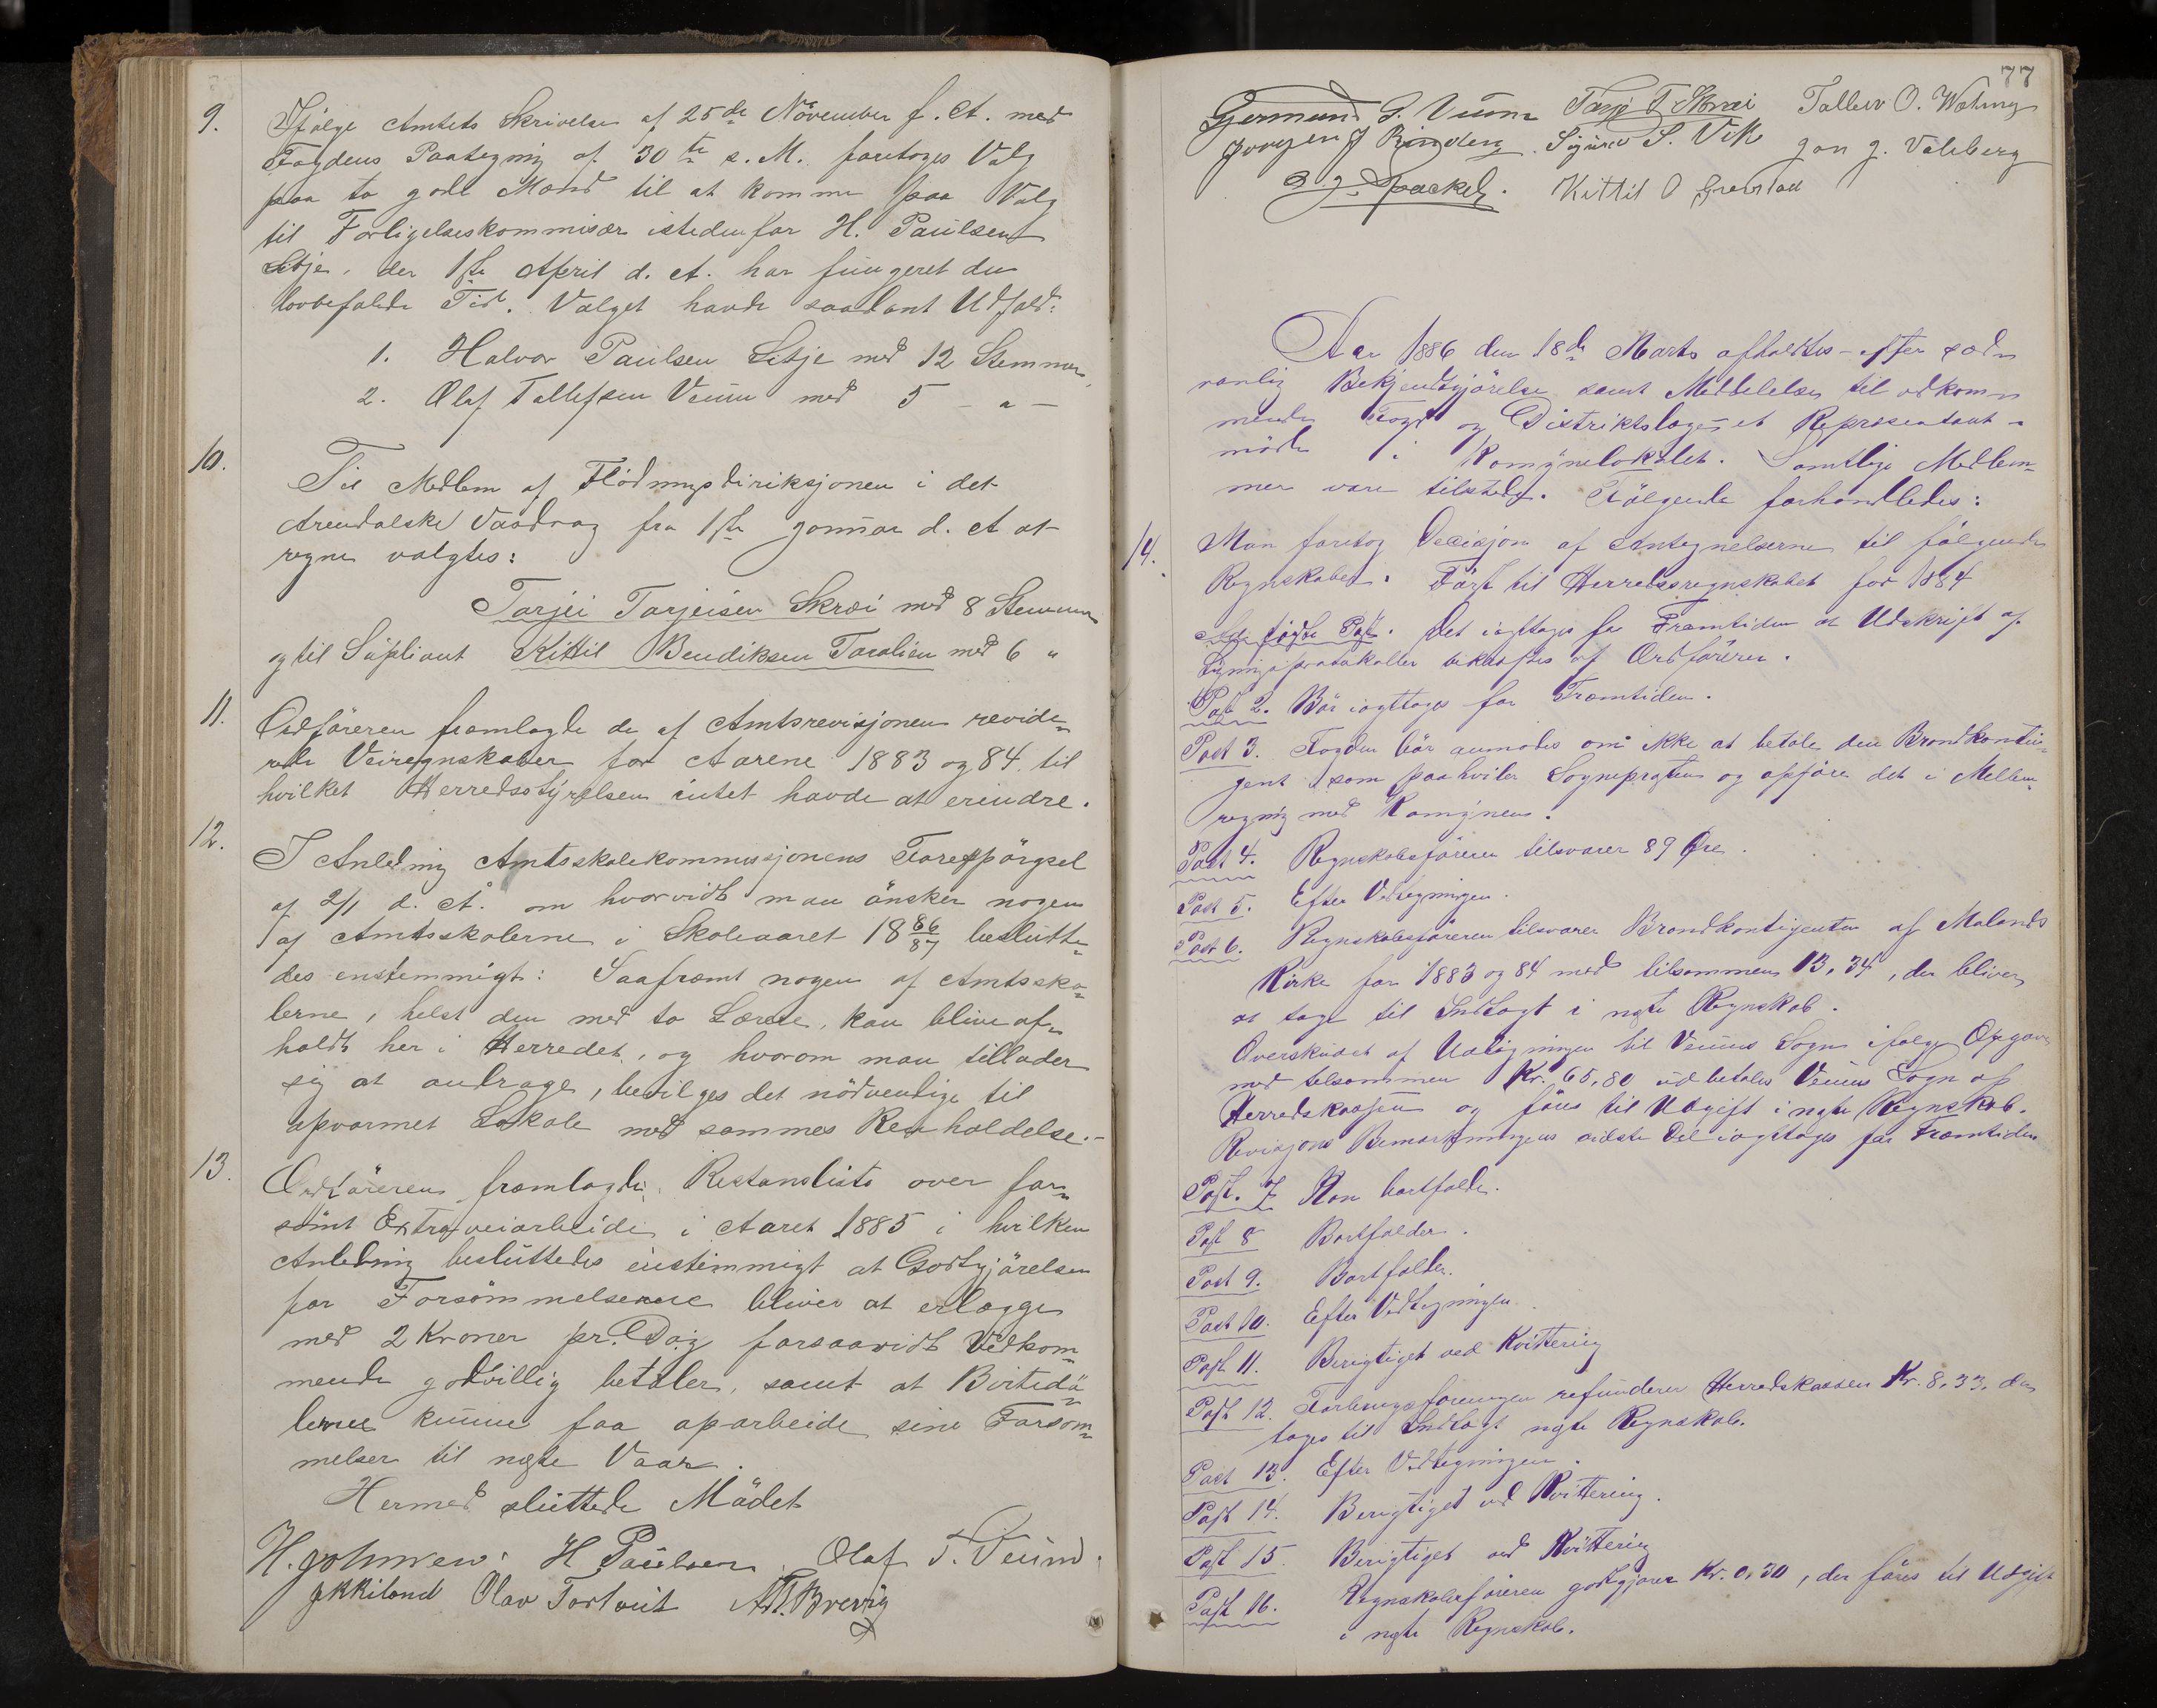 9. Ifølge Amtets Skrivelse af 25de November f. A. med
Fogdens Paategning af 30te s. M. foretoges Valg
paa to gode Mænd til at komme paa Valg
til Forligelseskommisær istedenfor H. Paulsen
Litje, der 1ste April d. A. har fungeret den
lovbefalede Tid. Valget havde saadant Udfald:
1. Halvor Paulsen Litje med 12 Stemmer,
2. Olaf Tallefsen Veum med 5 – " –
10. Til Medlem af Flødningsdiriksjonen i det
Arendalske Vasdrag fra 1ste Januar d. A at
regne valgtes:
Tarjei Tarjeisen Skræi med 8 Stemmer
og til Supliant Kittil Bendiksen Taralien med 6 "
11. Ordføreren fremlagde de af Amtsrevisjonen revide-
rede Veiregnskaber for Aarene 1883 og 84 til
hvilket Herredsstyrelsen intet havde at erindre.
12. I Anledning Amtsskolekommissjonens Forespørgsel
af 2/1 d. A. om hvorvidt man ønsker nogen
af Amtsskolerne i Skoleaaret 1886/87 beslutte-
des enstemmigt: Saafremt nogen af Amtssko-
lerne, helst den med to Lærere, kan blive af-
holdt her i Herredet, og hvorom man tillader
sig at andrage, bevilges det nødvendige til
opvarmet Lokale med sammes Renholdelse.-
13. Ordføreren fremlagde Restanseliste over for-
sømt Extraveiarbeide i Aaret 1885 i hvilken
Anledning besluttedes enstemmigt at Godtgjørelsen
for Forsømmelserne bliver at erlægge
med 2 Kroner pr. Dag forsaavidt Vedkom-
mende godvillig betaler, samt at Birtedø-
lerne kunne faa oparbeide sine Forsøm-
melser til neste Vaar.
Hermed sluttede Mødet
H. Johnsen. H Paulsen. Olaf T. Veum.
Olav Tortveit
77
Germund G. Veum Tarje T Skræi Tallev O.
Jørgen J Rinden. Sigurd S. Vik Jon J.
Kittil O
Aar 1886 den 18de Marts afholdtes – efter sæd-
vanlig Bekjendtgjørelse samt Meddelelse til vedkom-
mende Fogd og Distriktslæge – et Repræsentant-
møde i Komunelokalet. Samtlige Medlem-
mer vare tilstede. Følgende forhandledes:
14. Man foretog Decisjon af Antegnelserne til følgende
Regnskaber: Først til Herredsregnskabet for 1884
Post. Det iagttages for Framtiden at Udskrift af
Ligningsprotokollen bekræftes af Ordføreren.
Post 2. Bør iagttages for Framtiden.
Post 3. Fogden bør anmodes om ikke at betale den Brandkontin-
gent som paahviler Sognepresten og opføre det i Mellem-
regning med Komunen.
Post 4. Regnskabsføreren tilsvarer 89 Øre.
Post 5. Efter Vedtegningen.
Post 6. Regnskabsføreren tilsvarer Brandkontigenten af Molands
Kirke for 1883 og 84 med tilsammen 13,34, der bliver
at tage til Indtægt i neste Regnskab.
Overskudet af Udligningen til Veums Sogn ifølge Opgave
med tilsammen Kr. 65,80 udbetales Veums Sogn af
Herredskassen og føres til Udgift i neste Regnskab.
Revisjons Bemærkningens sidste Del iagttages for Framtiden
Post. 7 Kan bortfalde.
Post 8 Bortfalder.
Post 9. Bortfalder.
Post 10. Efter Vedtegningen
Post 11. Berigtiget ved Kvittering
Post 12. Forlovsforeningen refunderer Herredskassen Kr. 8,33, der
tages til Indtægt neste Regnskab.
Post 13. Efter Vedtegningen.
Post 14. Berigtiget ved Kvittering.
Post 15. Berigtiget ved Kvittering
Post 16. Regnskabsføreren godtgjøres Kr. 0,30, der føres til Udgift
i neste Regnskab.